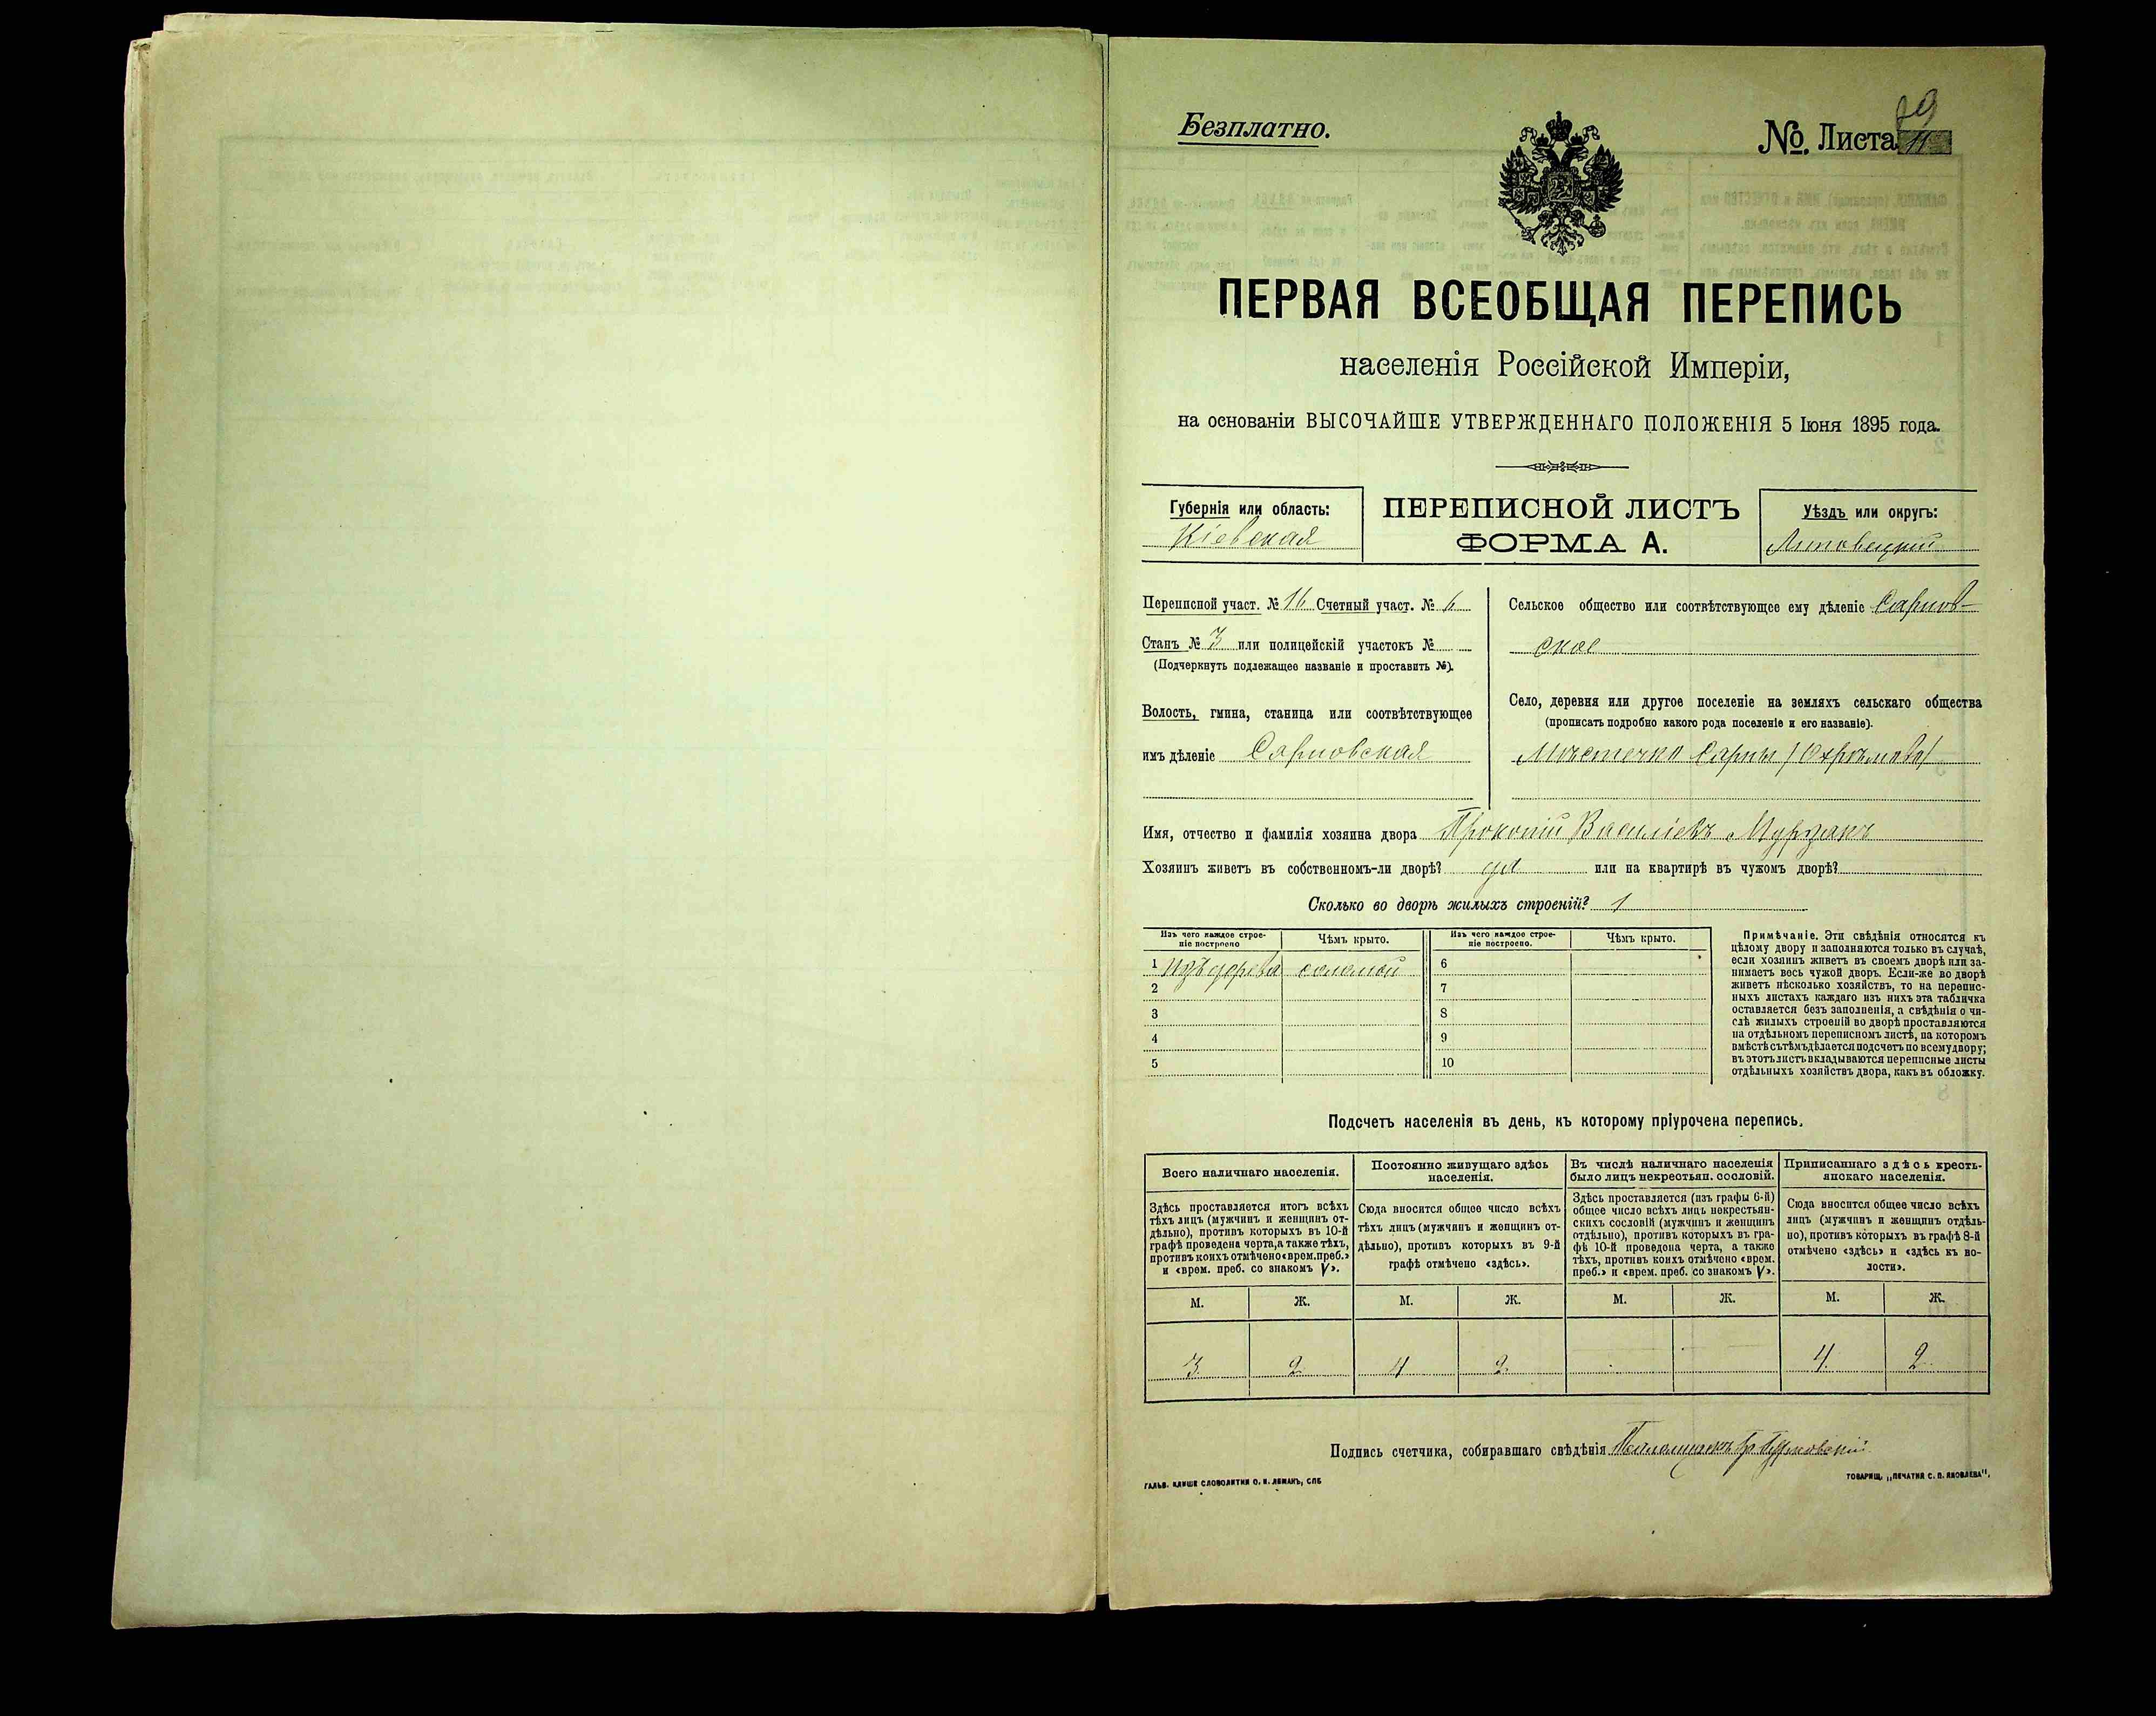 Безплатно.
№. Листа 11
ПЕРВАЯ ВСЕОБЩАЯ ПЕРЕПИСЬ
населенія Россійской Имперіи,
на основаніи ВЫСОЧАЙШЕ УТВЕРЖДЕННАГО ПОЛОЖЕНІЯ 5 Іюня 1895 года.
Губернія или область:
Кіевская
ПЕРЕПИСНОЙ ЛИСТЪ
ФОРМА А.
Уѣздъ или округъ:
Липовецкій
Переписной участ. № 16 Счетный участ. № 6
Станъ № 3 или полицейскій участокъ №
(Подчеркнуть подлежащее названіе и проставить №).
Волость, гмина, станица или соотвѣтствующее
имъ дѣленіе Сарновская
Сельское общество или соотвѣтствующее ему дѣленіе Сарнов-
ское
Село, деревня или другое поселеніе на земляхъ сельскаго общества
(прописать подробно какого рода поселеніе и его названіе).
Мѣстечко Сарны
Имя, отчество и фамилія хозяина двора Прокопій Василіевъ Мурзакъ
Хозяинъ живетъ въ собственномъ-ли дворѣ? да или на квартирѣ въ чужомъ дворѣ?
Сколько во дворѣ жилыхъ строеній? 1
Изъ чего каждое строе-
ніе построено
Чѣмъ крыто.
Изъ чего каждое строе-
ніе построено.
Чѣмъ крыто.
1 Изъ дерева соломой
2
3
4
5
6
7
8
9
10
Примѣчаніе. Эти свѣдѣнія относятся къ
цѣлому двору и заполняются только въ случаѣ,
если хозяинъ живетъ въ своемъ дворѣ или за-
нимаетъ весь чужой дворъ. Если-же во дворѣ
живетъ нѣсколько хозяйствъ, то на перепис-
ныхъ листахъ каждаго изъ нихъ эта табличка
оставляется безъ заполненія, а свѣдѣнія о чи-
слѣ жилыхъ строеній во дворѣ проставляются
на отдѣльномъ переписномъ листѣ, на которомъ
вмѣстѣ съ тѣмъ дѣлается подсчетъ по всему двору;
въ этотъ листъ вкладываются переписные листы
отдѣльныхъ хозяйствъ двора, какъ въ обложку.
Подсчетъ населенія въ день, къ которому пріурочена перепись.
Всего наличнаго населенія.
Здѣсь проставляется итогъ всѣхъ
тѣхъ лицъ (мужчинъ и женщинъ от-
дѣльно), противъ которыхъ въ 10-й
графѣ проведена черта, а также тѣхъ,
противъ коихъ отмѣчено «врем. преб.»
и «врем. преб. со знакомъ V».
Постоянно живущаго здѣсь
населенія.
Сюда вносится общее число всѣхъ
тѣхъ лицъ (мужчинъ и женщинъ от-
дѣльно), противъ которыхъ въ 9-й
графѣ отмѣчено «здѣсь».
Въ числѣ наличнаго населенія
было лицъ некрестьян. сословій.
Здѣсь проставляется (изъ графы 6-й)
общее число всѣхъ лицъ некрестьян-
скихъ сословій (мужчинъ и женщинъ
отдѣльно), противъ которыхъ въ гра-
фѣ 10-й проведена черта, а также
тѣхъ, противъ коихъ отмѣчено «врем.
преб.» и «врем. преб. со знакомъ V».
Приписаннаго здѣсь кресть-
янскаго населенія.
Сюда вносится общее число всѣхъ
лицъ (мужчинъ и женщинъ отдѣль-
но), противъ которыхъ въ графѣ 8-й
отмѣчено «здѣсь» и «здѣсь къ во-
лости».
М. Ж. М. Ж. М. Ж. М. Ж.
3 2 4 2 4 2
Подпись счетчика, собиравшаго свѣдѣнія
ГАЛЬВ. КЛИШЕ СЛОВОЛИТНИ О. И. ЛЕМАНЪ, СПБ
ТОВАРИЩ. „ПЕЧАТНЯ С. П. ЯКОВЛЕВА".